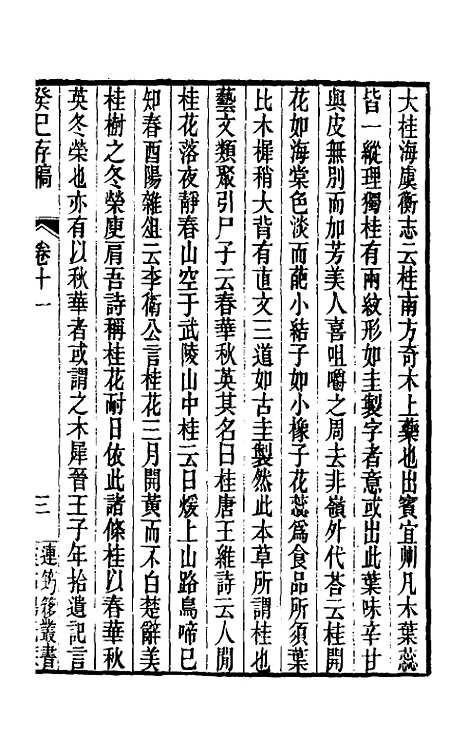 大桂海虞衡志云桂南方奇木上藥也出賓宜州凡木葉蕊
皆一縱理獨桂有兩紋形如圭製字者意或出此葉味辛甘
與皮無別而加芳美人喜咀嚼之周去非嶺外代荅云桂開
花如海棠色淡而葩小結子如小橡子花蕊爲食品所須葉
比木樨稍大背有直文三道如古圭製然此本草所謂桂也
藝文類聚引尸子云春華秋英其名曰桂唐王維詩云人閒
桂花落夜靜春山空于武陵山中桂云日煖上山路鳥啼已
知春酉陽雜俎云李衛公言桂花三月開黄而不白楚辭美
桂樹之冬榮庾肩吾詩稱桂花耐日依此諸條桂以春華秋
英冬榮也亦有以秋華者或謂之木犀晉王子年拾遺記言
癸巳存稿 卷十一 三 連筠簃叢書